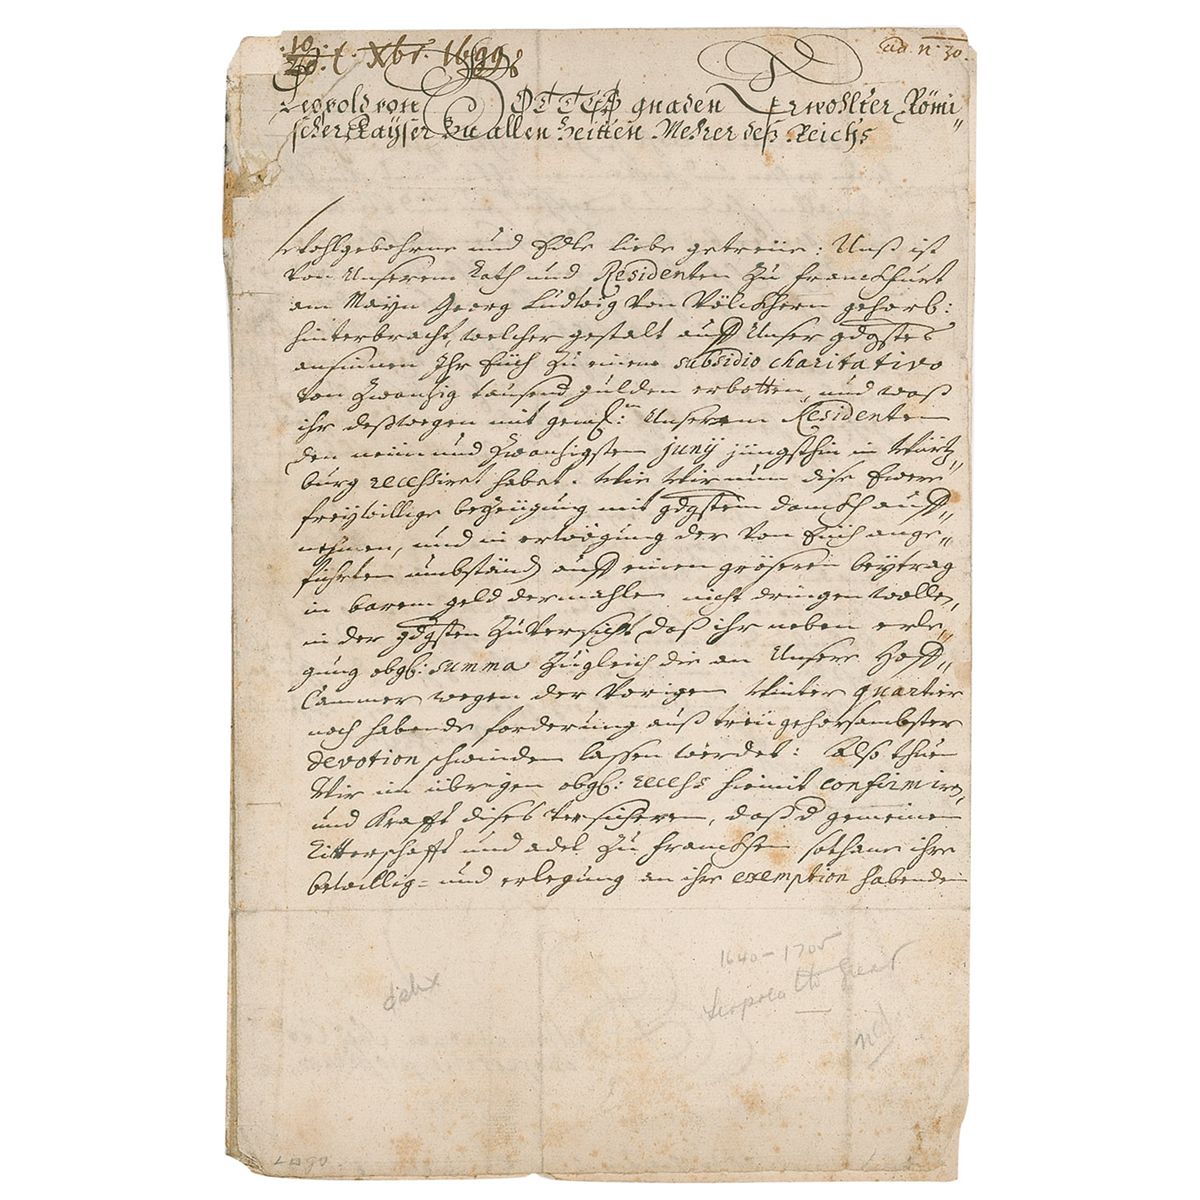 10
20. t. Xbr. 1699.
ad. n. 30.
Leopold von GOTTES gnaden Erwohlter Römi„
scher Kayser Zu allen Zeitten Mehrer deß Reichs
Wohlgebohrne und Edle liebe getreüe: Unß ist
von Unserem Rath und Residenten zu Franckfurt
am Mayn Georg Ludwig von Völckhern gehorb:
hinterbracht, welcher gestalt auff Unser gdgstes
ansinnen Ihr Eüch zu einem subsidio charitativo
von zwanzig tausend gulden erbotten, und waß
ihr deßwegen mit gem: Unserem Residenten
den neün und zwanzigsten junij jüngsthin in Würtz„
burg recessiret habet. Wie Wir nun dise Ewere
freywillige bezeügung mit gdgstem danckh auff„
nehmen, und in erwögung der von Eüch ange„
führten umbständ auff einen gröseren beytrag
in barem geld dermahlen nicht dringen wollen,
in der gdgsten Zuversicht, daß ihr neben erle„
gung obgl: summa zugleich die an Unsere Hoff„
Cammer wegen der vorigen Winter quartier
noch habende forderung auß treü gehorsambster
devotion schwinden lassen werdet: Alß thun
Wir im übrigen obgl: recess hiemit confirmiren,
und Krafft dises versicheren, daß d gemeinen
Ritterschafft und adel zu Franckhen sothane ihre
bewillig- und erlegung an ihre exemption habenden
1640-1705
Leopold the Great